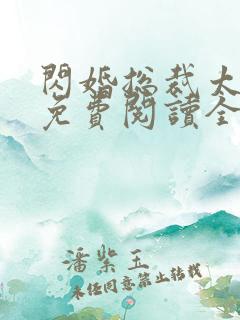 閃婚總裁太
免費閱讀全
潘紫玉
未经同意禁止转载